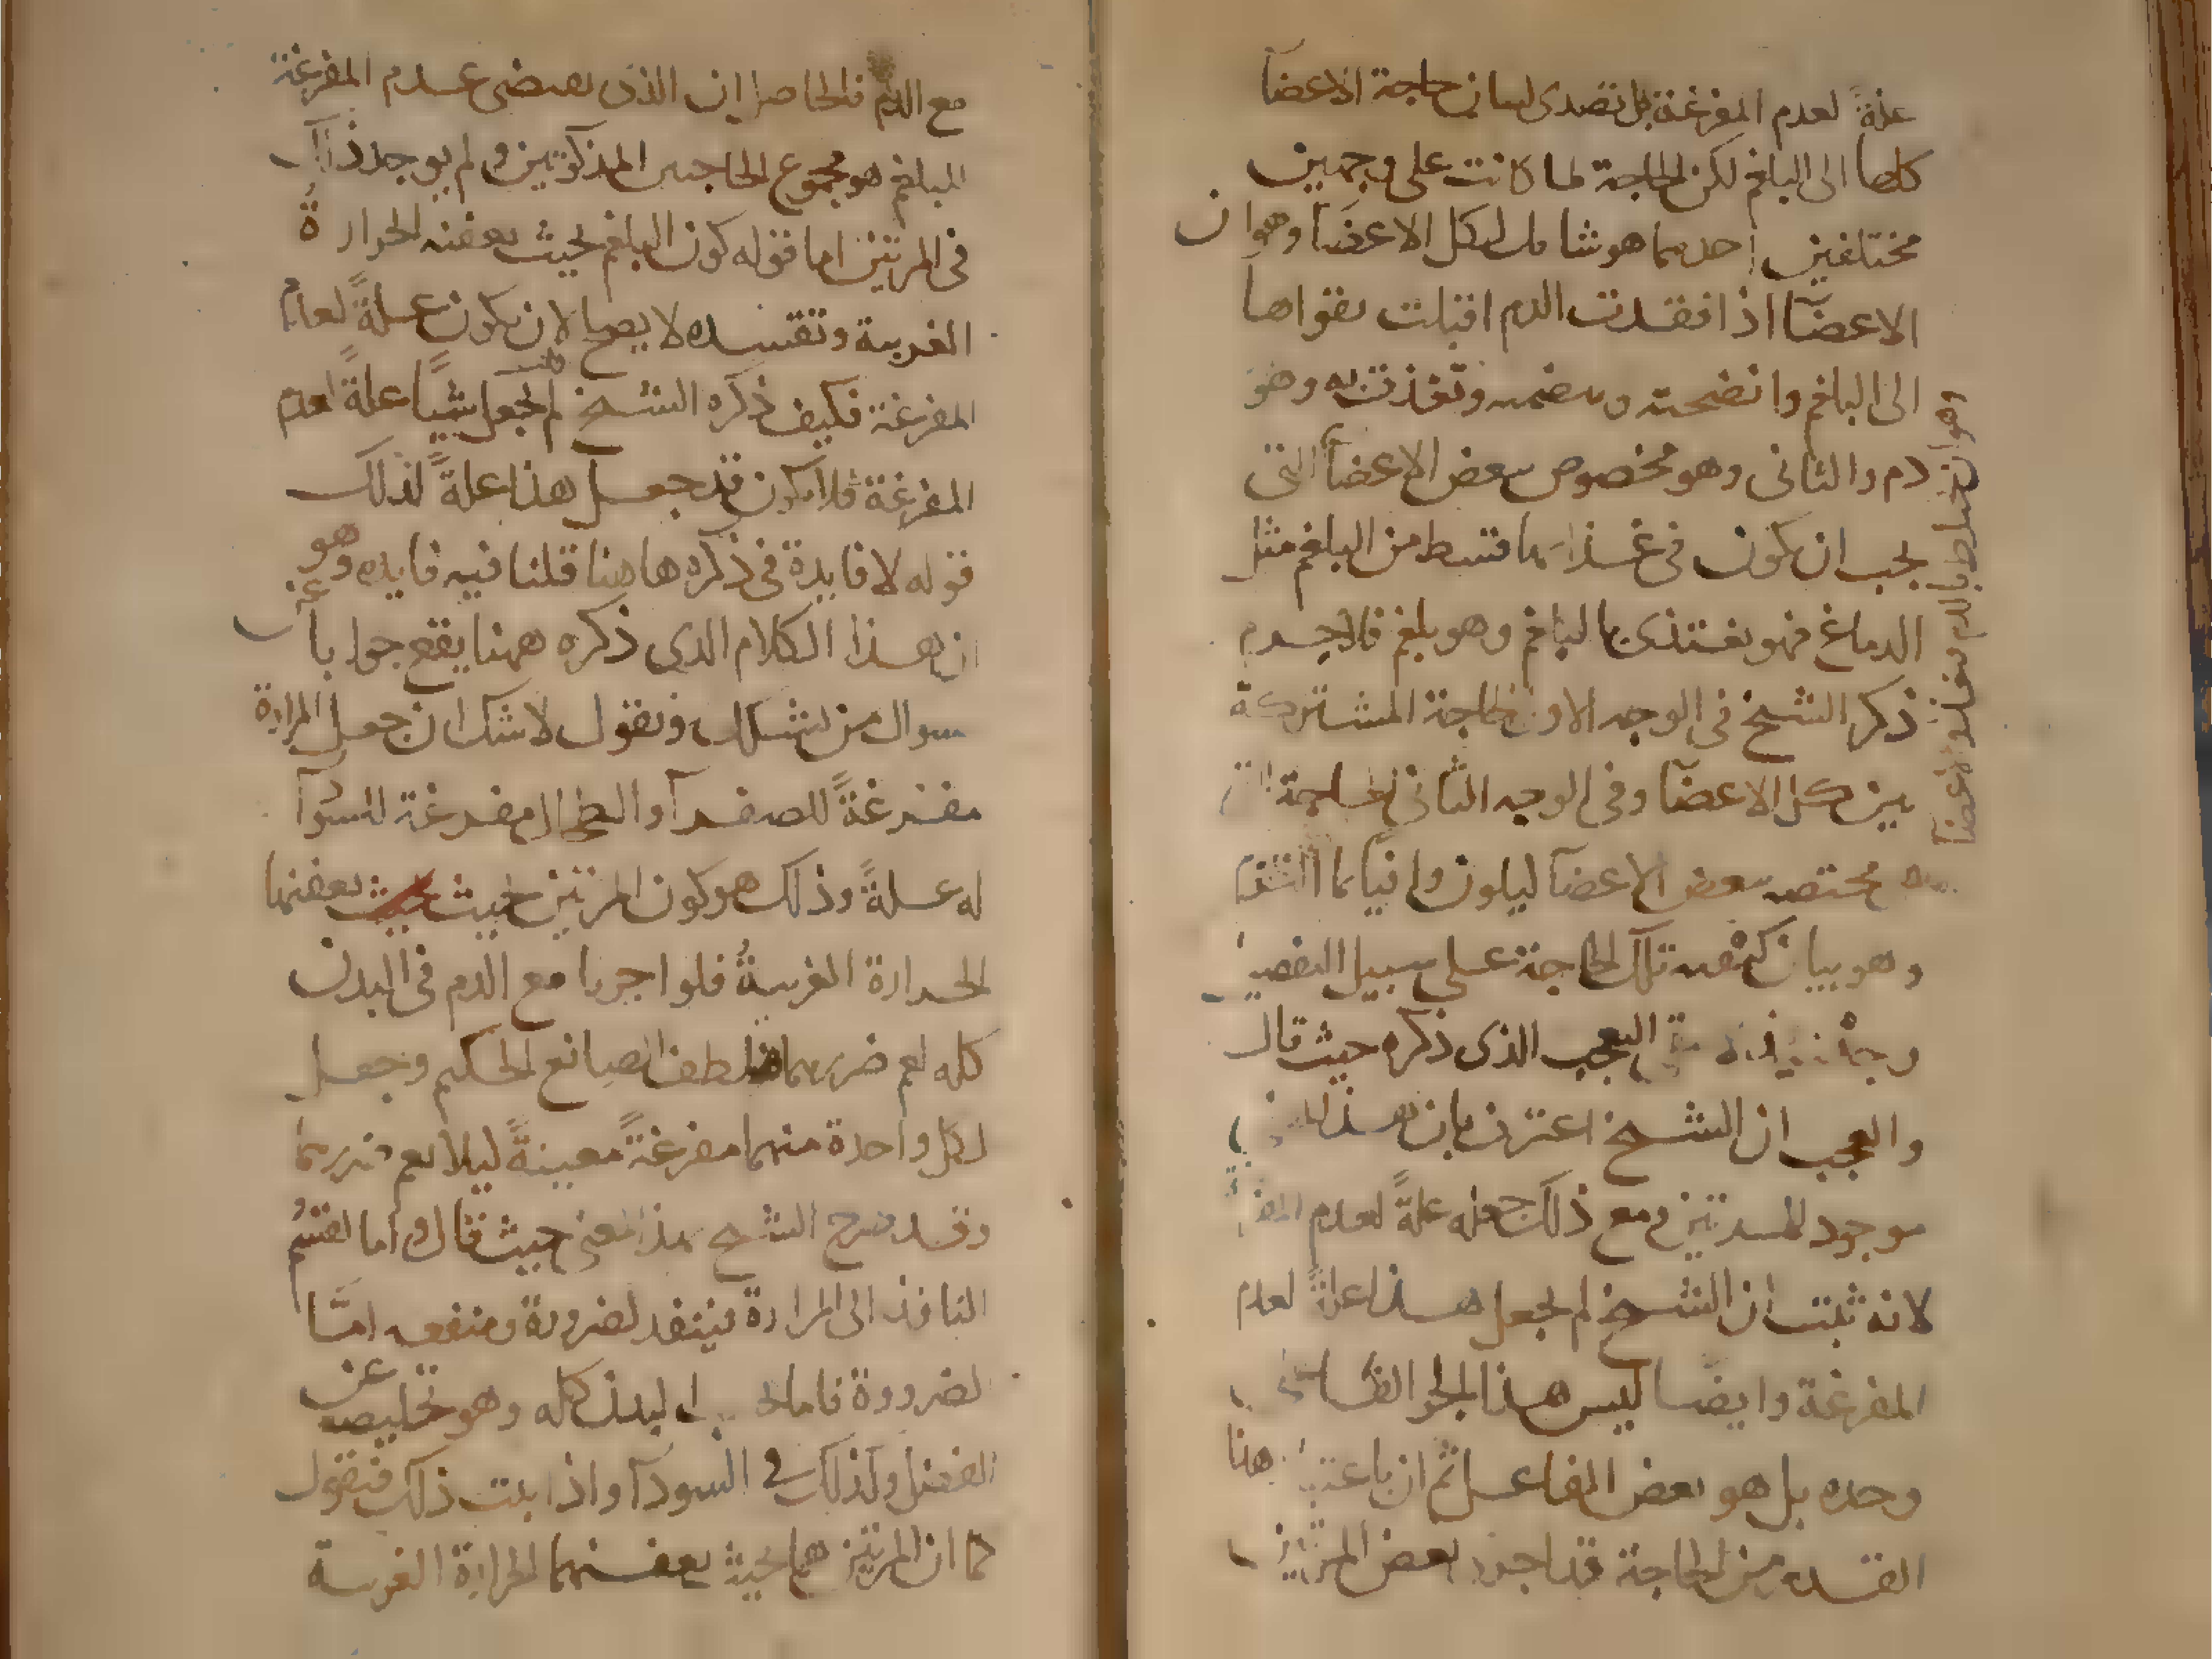 علةً لعدم المفرغة بل تصدى لبيان حاجة الاعضآ
كلها الى البلغم لكن الحاجة لما كانت على وجهين
مختلفين احدهما هو شامل لكل الاعضآ وهو ان
الاعضآ اذا فقدت الدم اقبلت بقواها
الى البلغم وانضجته وهضمته وتغذت به وهو
دم والثانى وهو مخصوص ببعض الاعضآ التى
يجب ان يكون فى غذايها قسط من البلغم مثل
الدماغ فهو يغتذى بالبلغم وهو بلغم فلاجرم
ذكر الشيخ فى الوجه الاول الحاجة المشتركة
بين كل الاعضآ وفى الوجه الثانى الحاجة
مختصه ببعض الاعضآ ليكون وافيًا بما
وهو بيان كيفية تلك الحاجة على سبيل التفصيل
العجب الذى ذكره حيث قال
والعجب ان الشيخ اعترف بان هذا
موجود للمرتين ومع ذلك جعله علةً لعدم
لانه ثبت ان الشيخ لم يجعل هذا علةً لعدم
المفرغة وايضًا ليس هذا
وحده بل هو بعض المفاعل ثم ان باعتبار هنا
القدر من الحاجة قد اجرى بعض المرتين
وهو ان يختلط بالدم فيغذو الاعضآ
مع الدم فالحاصل ان الذى يقتضى عدم المفرغة
للبلغم هو مجموع الحاجتين المذكورتين ولم يوجد ذلك
فى المرتين اما قوله كون البلغم بحيث يعفنه الحرارة
الغريبة وتفسده لا يصلح لان يكون علةً لعدم
المفرغة فكيف ذكره الشيخ قلنا لم يجعل شيًا علةً لعدم
المفرغة فلا يكون قد جعل هذا علةً لذلك
قوله لا فايدة فى ذكره هاهنا قلنا فيه فايده وهو
ان هذا الكلام الذى ذكره ههنا يقع جوابا عن
سوال من يشكك ويقول لا شك ان جعل المرارة
مفرغةً للصفرآ والطحال مفرغة للسودآ
له علةً وذلك هو كون المرتين بحيث يعفنهما
الحرارة الغريبةُ فلو اجريا مع الدم فى البدن
كله لعم ضررهما فلطف الصانع الحكيم وجعل
لكل واحدة منهما مفرغةً معينةً ليلا يعم ضررهما
وقد صرح الشيخ بهذا المعنى حيث قال واما القسم
النافذ الى المرارة فينفذ لضرورة ومنفعه امّا
لضرورة فاما بحسب البدن كله وهو تخليصه عن
الفضل وكذلك فى السودآ واذا ثبت ذلك فنقول
كما ان المرتين هما بحيث يعفنهما الحرارة الغريبة